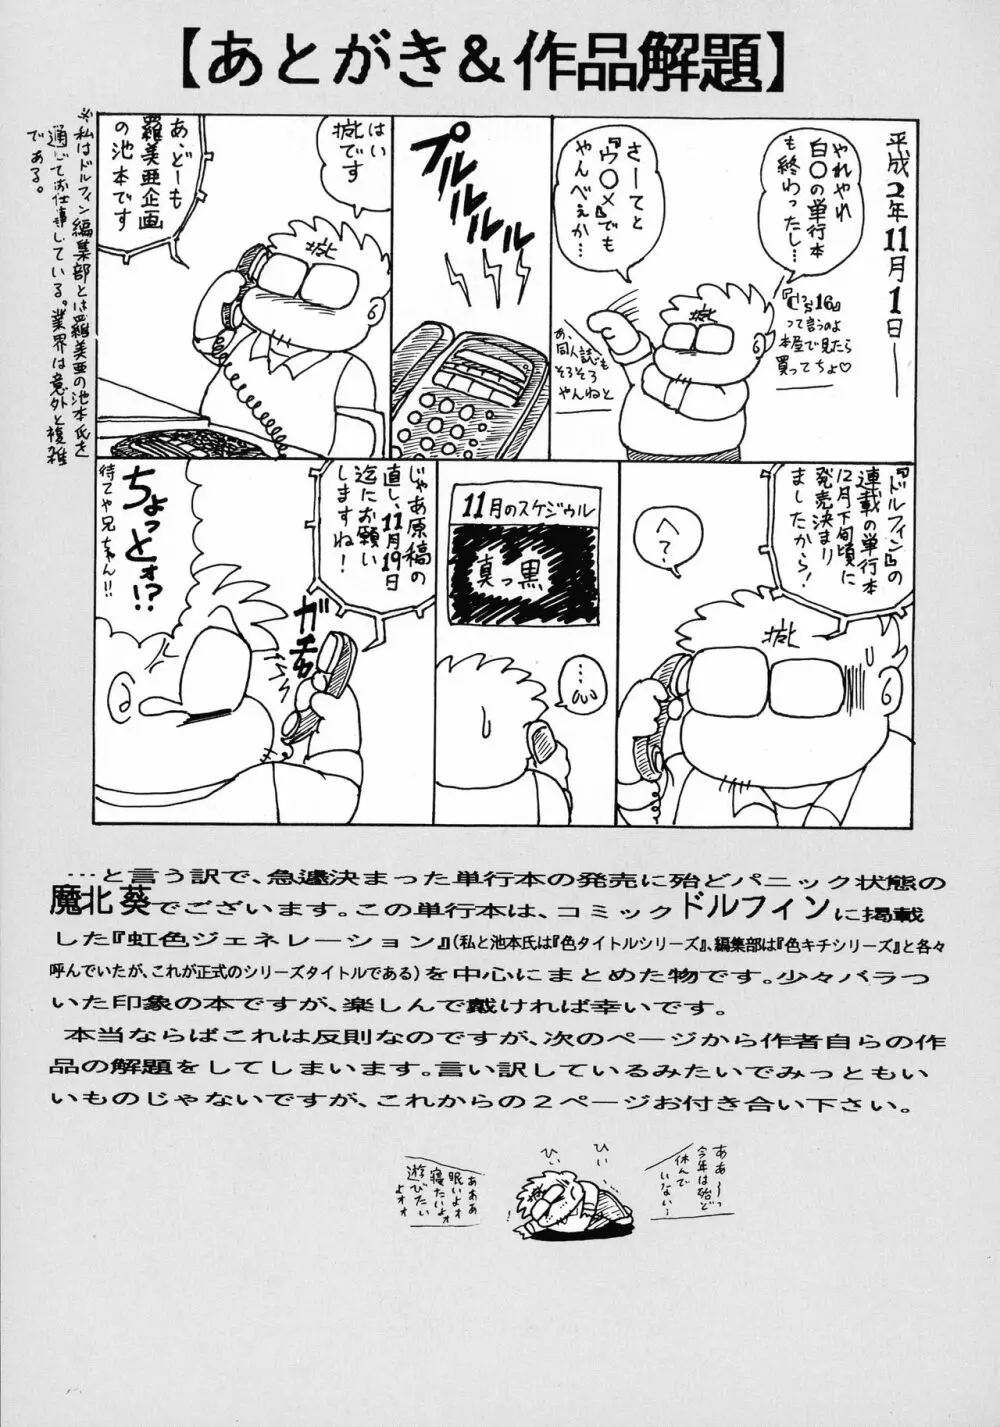 【あとがき＆作品解題】
平成2年11月1日──
やれやれ
白〇の単行本
も終わったし…
って言うのよ
本屋で見たら
買ってちょ♡
さーてと
『ウ〇×』でも
やんべぇか…
あ、
同人誌でも
そろそろ
やんねと
プルルルルル
はい
です
あ、どーも
羅美亜企画
の池本です
※私はドルフィン編集部とは羅美亜の池本氏を
通じてお仕事している。業界は意外と複雑
である。
『ドルフィン』の
連載の単行本
12月下旬頃に
発売決まり
ましたから！
へ？
11月のスケジゥル
真っ黒
…
じゃあ原稿の
直し、11月19日
迄にお願い
しますね！
ガチャ
ちょっとォ!?
待てや兄ちゃん!!
…と言う訳で、急遽決まった単行本の発売に殆どパニック状態の
魔北葵でございます。この単行本は、コミックドルフィンに掲載
した『虹色ジェネレーション』(私と池本氏は『色タイトルシリーズ』、編集部は『色キチシリーズ』と各々
呼んでいたが、これが正式のシリーズタイトルである)を中心にまとめた物です。少々バラつ
いた印象の本ですが、楽しんで戴ければ幸いです。
本当ならばこれは反則なのですが、次のページから作者自らの作
品の解題をしてしまいます。言い訳しているみたいでみっともい
いものじゃないですが、これからの2ページお付き合い下さい。
ああ〜っ
今年は殆ど
休んで
いない…
ひぃ
ひぃ
あああ
眠いよォ
寝たいよォ
遊びたい
よォォ